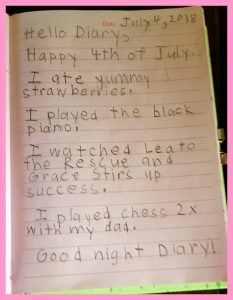 Date July 4, 2018
Hello Diary,
Happy 4th of July.
I ate yummy
strawberries.
I played the black
piano.
I watched Lea to
the Rescue and
Grace Stirs up
success.
I played chess 2x
with my dad.
Good night Diary!